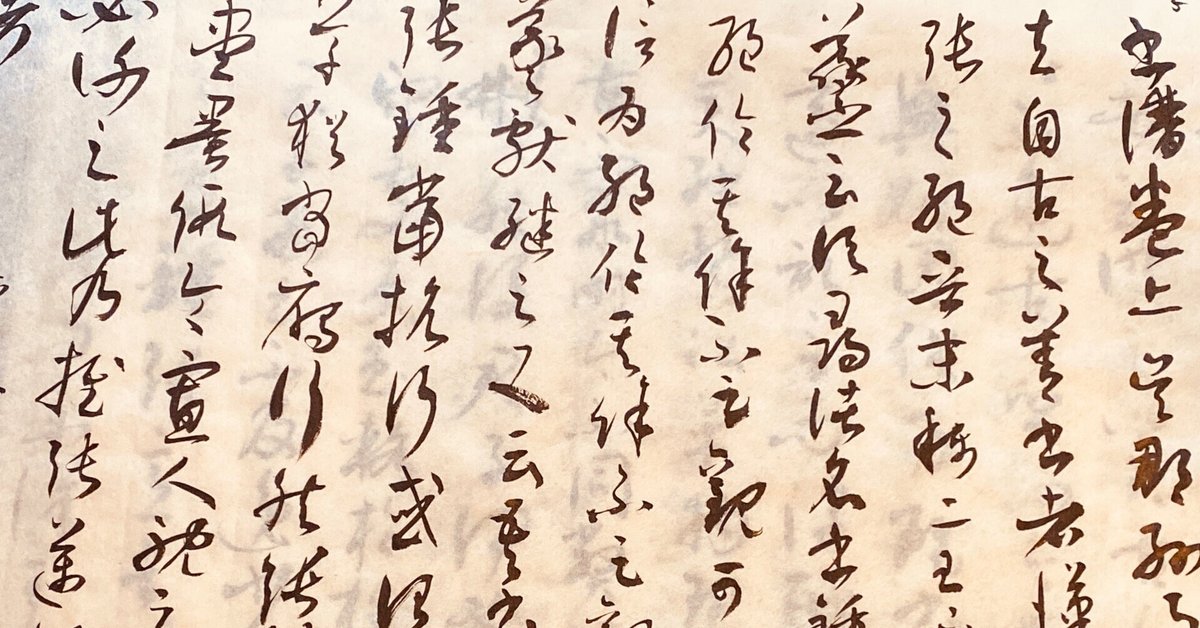 書譜卷上 吳郡孫過
夫自古之善書者漢
張之絕晉末稱二王之
羲之云頃尋諸名書鍾
絕倫其餘不足觀可
信為絕倫其餘不足觀
羲獻繼之又云吾書
張鍾當抗行或謂
草猶當鴈行然張
盡墨假令寡人耽之
必謝之此乃推張邁